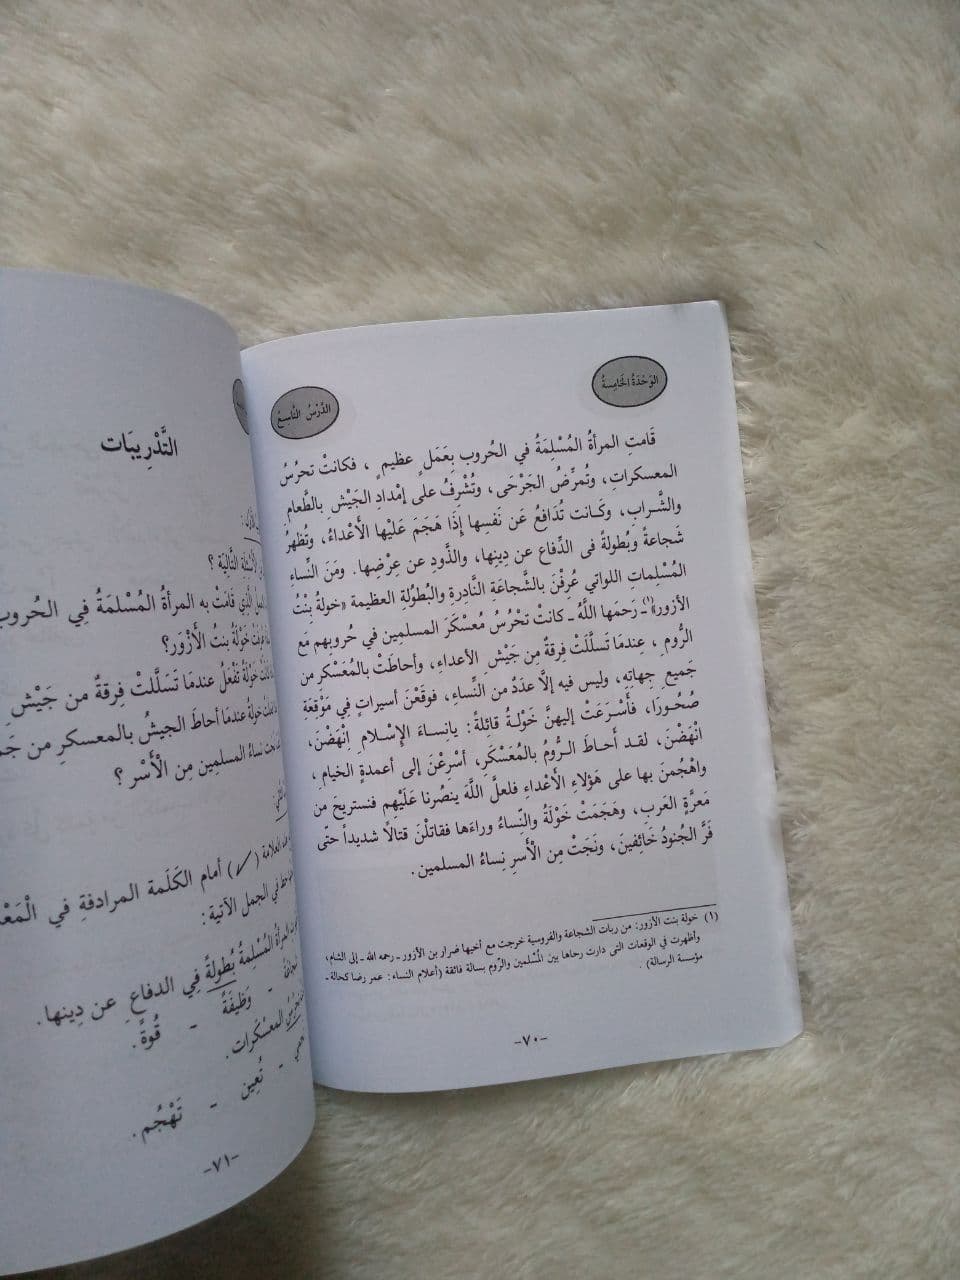 الوَحْدَةُ الخَامِسَةُ
الدَّرْسُ التَّاسِعُ
قَامَتِ المرأةُ المُسْلِمَةُ في الحُروب بِعَمَلٍ عظيمٍ ، فكانتْ تحرُسُ
المعسكرات، وتُمرِّضُ الجَرْحَى، وتُشْرِفُ على إمْدادِ الجَيْشِ بالطَّعامِ
والشَّراب، وكانت تُدَافعُ عَن نَفسِها إذَا هَجَمَ عَليْها الأَعْداءُ، وتُظهرُ
شَجاعةً وبُطولةً فى الدِّفاع عن دِينِها، والذَّودِ عن عِرْضِها. ومَنَ النِّساءِ
المُسْلماتِ اللواتي عُرِفْنَ بالشَّجاعَةِ النَّادِرةِ والبُطُولةِ العظيمة «خولةُ بِنْتُ
الأزور»(١)ـ رحمَها اللَّهُ ـ كانتْ تحْرُسُ مُعسْكَرَ المسلمِين في حُروبهم مَع
الرُّوم ، عِندمَا تَسلَّلَتْ فِرقةٌ مِن جَيْشِ الأعداءِ، وأحاطَتْ بالمُعَسْكَرِ من
جَميع جِهاتِهِ، وليس فيه إلَّا عدَدٌ من النِّساءِ، فوقَعْنَ أسيرات في مَوْقَعَةِ
صُحُورَا، فأَسْرَعَتْ إليهنَّ خَوْلةُ قائلةً: يانساءَ الإسْلامِ انْهَضْنَ،
انْهَضْنَ، لقد أَحاطَ الرُّومُ بالمُعَسْكَرِ، أسْرِعْنَ إلى أعمدةِ الخيام ،
واهْجُمنَ بها على هَؤلاءِ الأعْداءِ فلعلَّ اللَّهَ ينصُرنا عَلَيْهِم فنستريحَ من
مَعرَّةِ العَربِ، وهَجَمَتْ خَوْلَةُ والنِّساءُ وراءَها فقاتلْنَ قتالًا شديداً حتَّى
فَرَّ الجُنودُ خَائِفينَ، ونَجَتْ مِن الْأَسرِ نِساءُ المسلمين.
(١) خولة بنت الأزور: من ربات الشجاعة والفروسية خرجت مع أخيها ضرار بن الأزور ـ رحمه الله ـ إلى الشام،
وأظهرت في الوقعات التى دارت رحاها بين المُسْلمين والرُّوم بسالة فائقة (أعلام النساء: عمر رضا كحالة ـ
مؤسسة الرسالة) .
-٧٠-
التَّدْرِيبَات
التَّالِيَة ؟
قَامَتْ به المرأةُ المُسْلمَةُ فِي الحُروب
خَوْلَةُ بنتُ الأَزْوَر؟
خَوْلةُ تَفْعَلُ عندمَا تَسَلَّلَت فِرقةٌ من جَيْشِ
خولةُ عندمَا أحاطَ الجيشُ بالمعسكرِ من
نساءُ المسلمِين مِن الْأَسْر ؟
العلامة (✓) أمام الكَلَمة المرادفةِ في
في الجمل الآتية:
المرأةُ المُسْلِمةُ بُطولةً فِي الدفاعِ عن دِينها.
وَظِيفَةً - قُوةً.
المعسْكَرات.
- تُعِين - تَهْجُم.
-٧١-